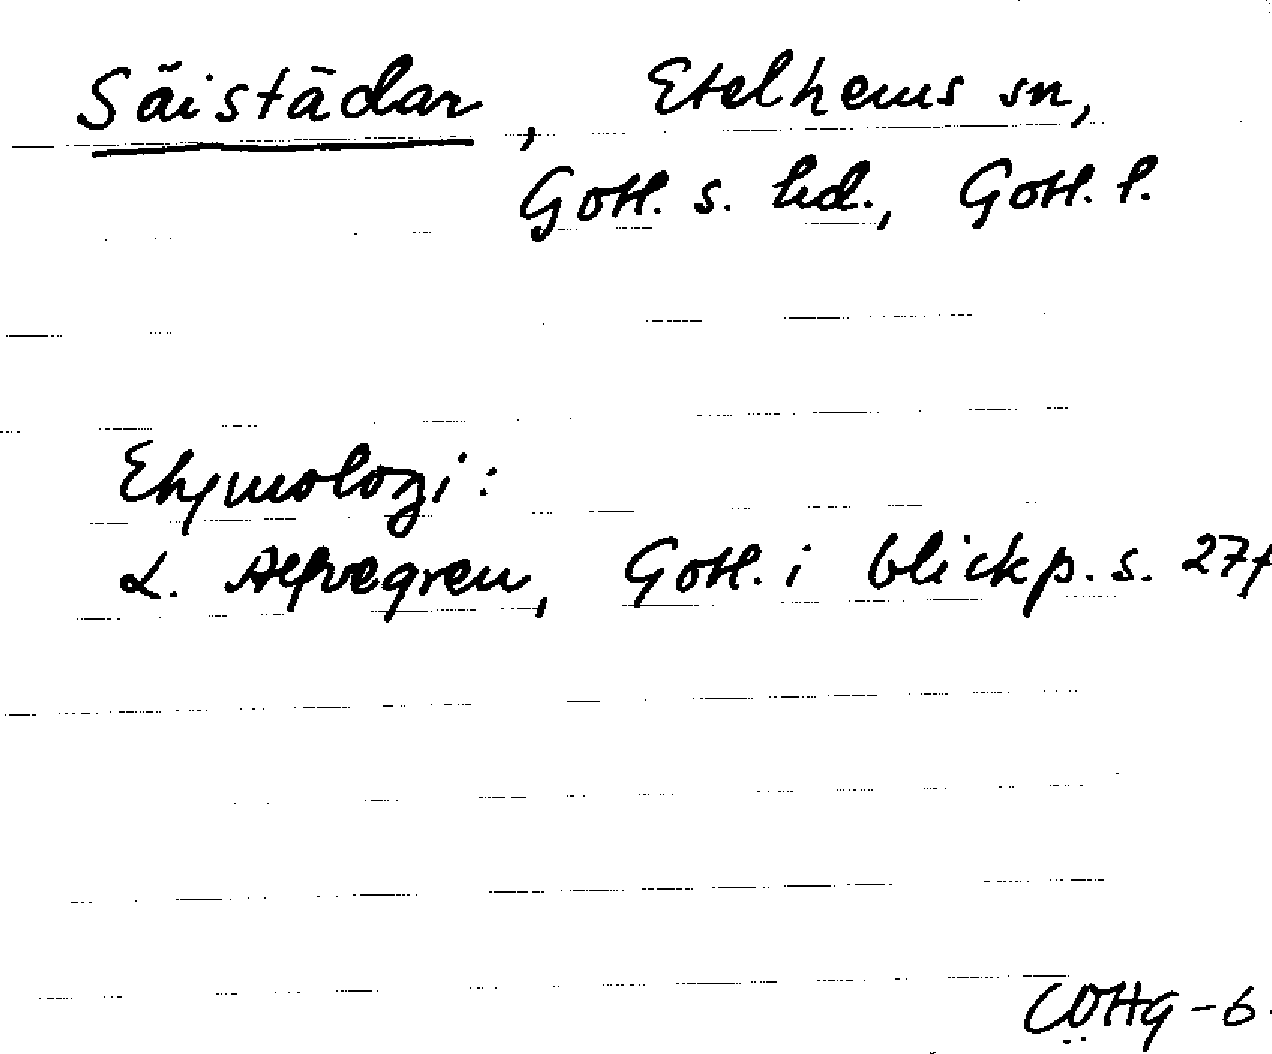 Säistädar, Etelhems sn,
Gotl. s. hd., Gotl. l.
Etymologi:
L. Alfvegren, Gotl. i blickp. s. 27f